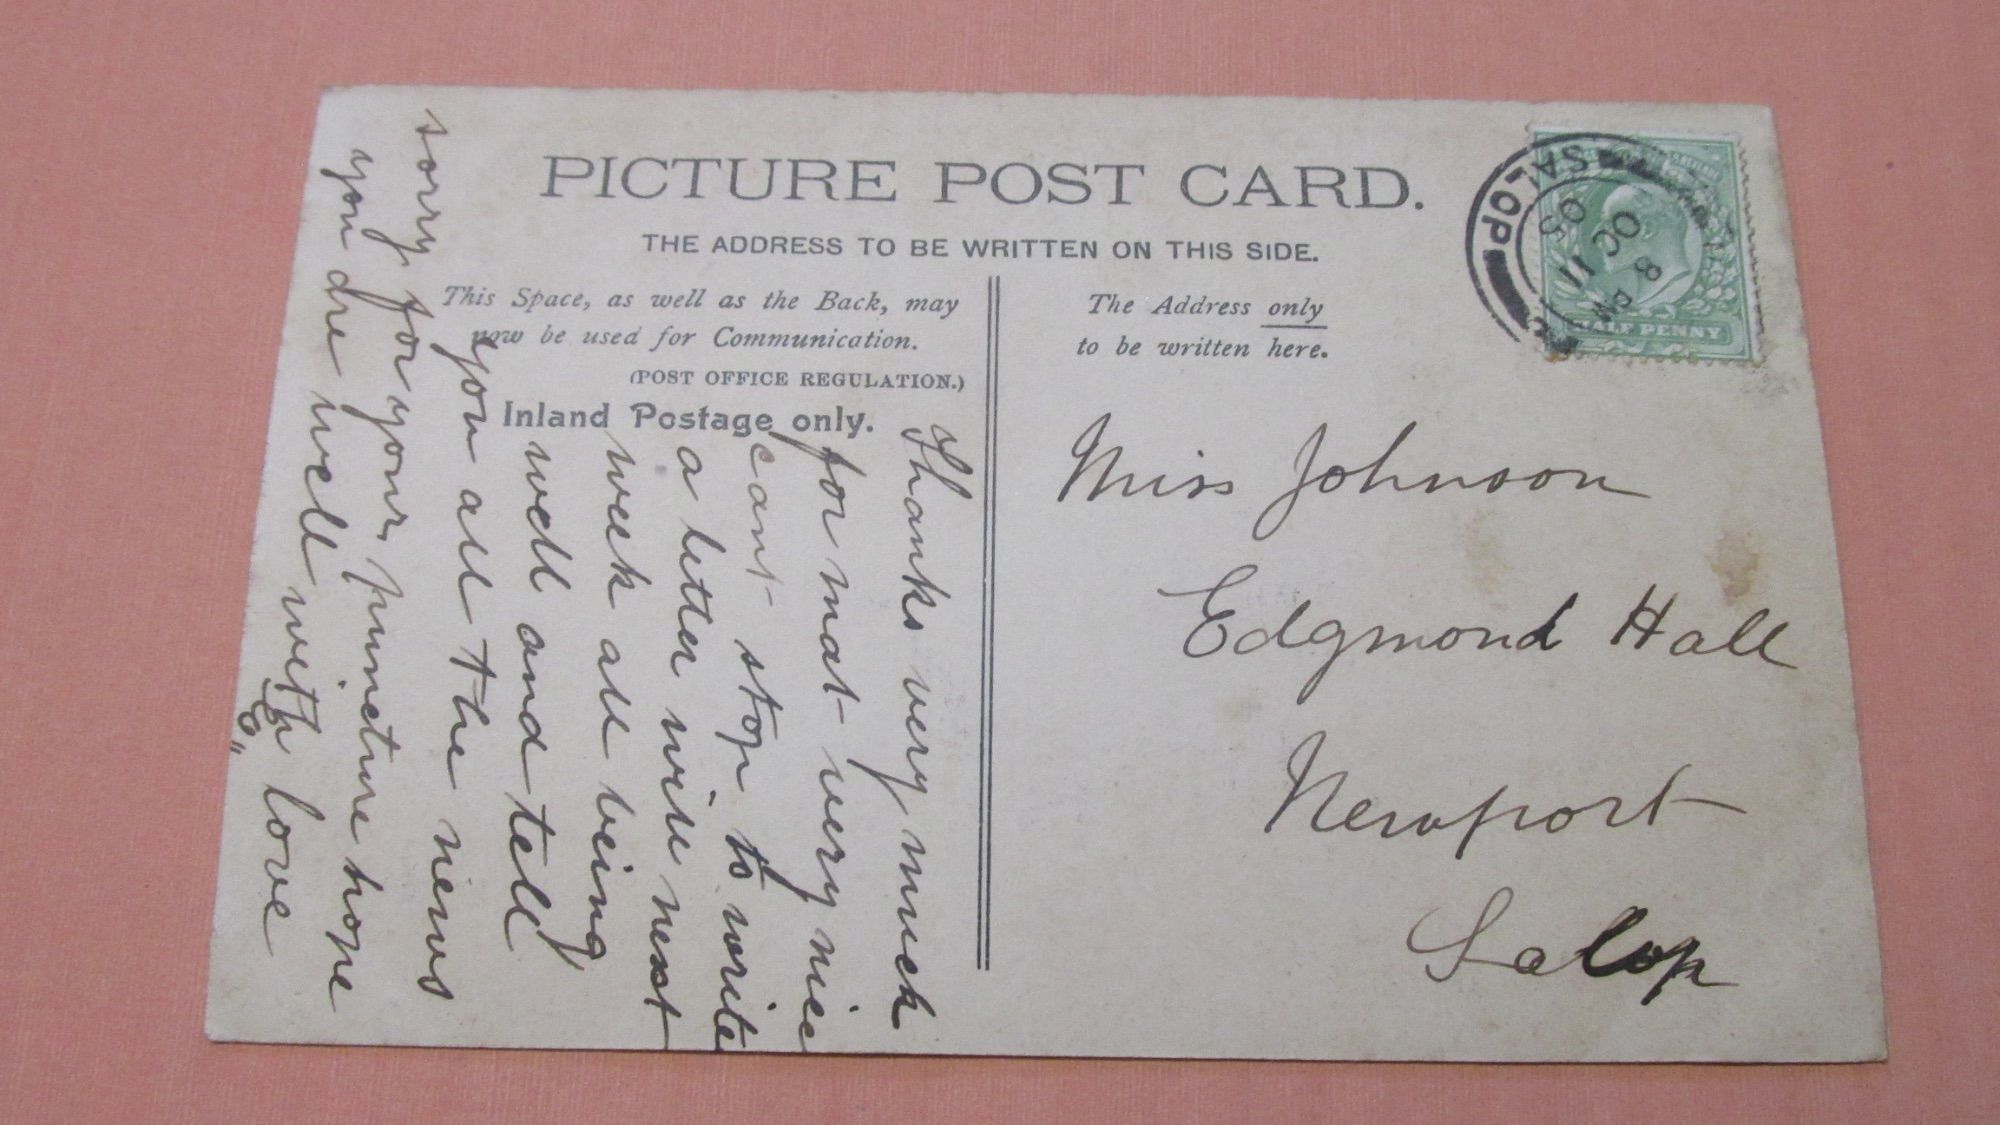 PICTURE POST CARD.
THE ADDRESS TO BE WRITTEN ON THIS SIDE.
This Space, as well as the Back, may
now be used for Communication.
(POST OFFICE REGULATION.)
Inland Postage only.
The Address only
to be written here.
SALOP
8 PM
OC 11
05
HALF PENNY
Miss Johnson
Edgmond Hall
Newport
Salop
Thanks very much
for mat very nice
cant stop to write
a letter will next
week all being
well and tell
you all the news
sorry for your puncture hope
you are well with love
E"